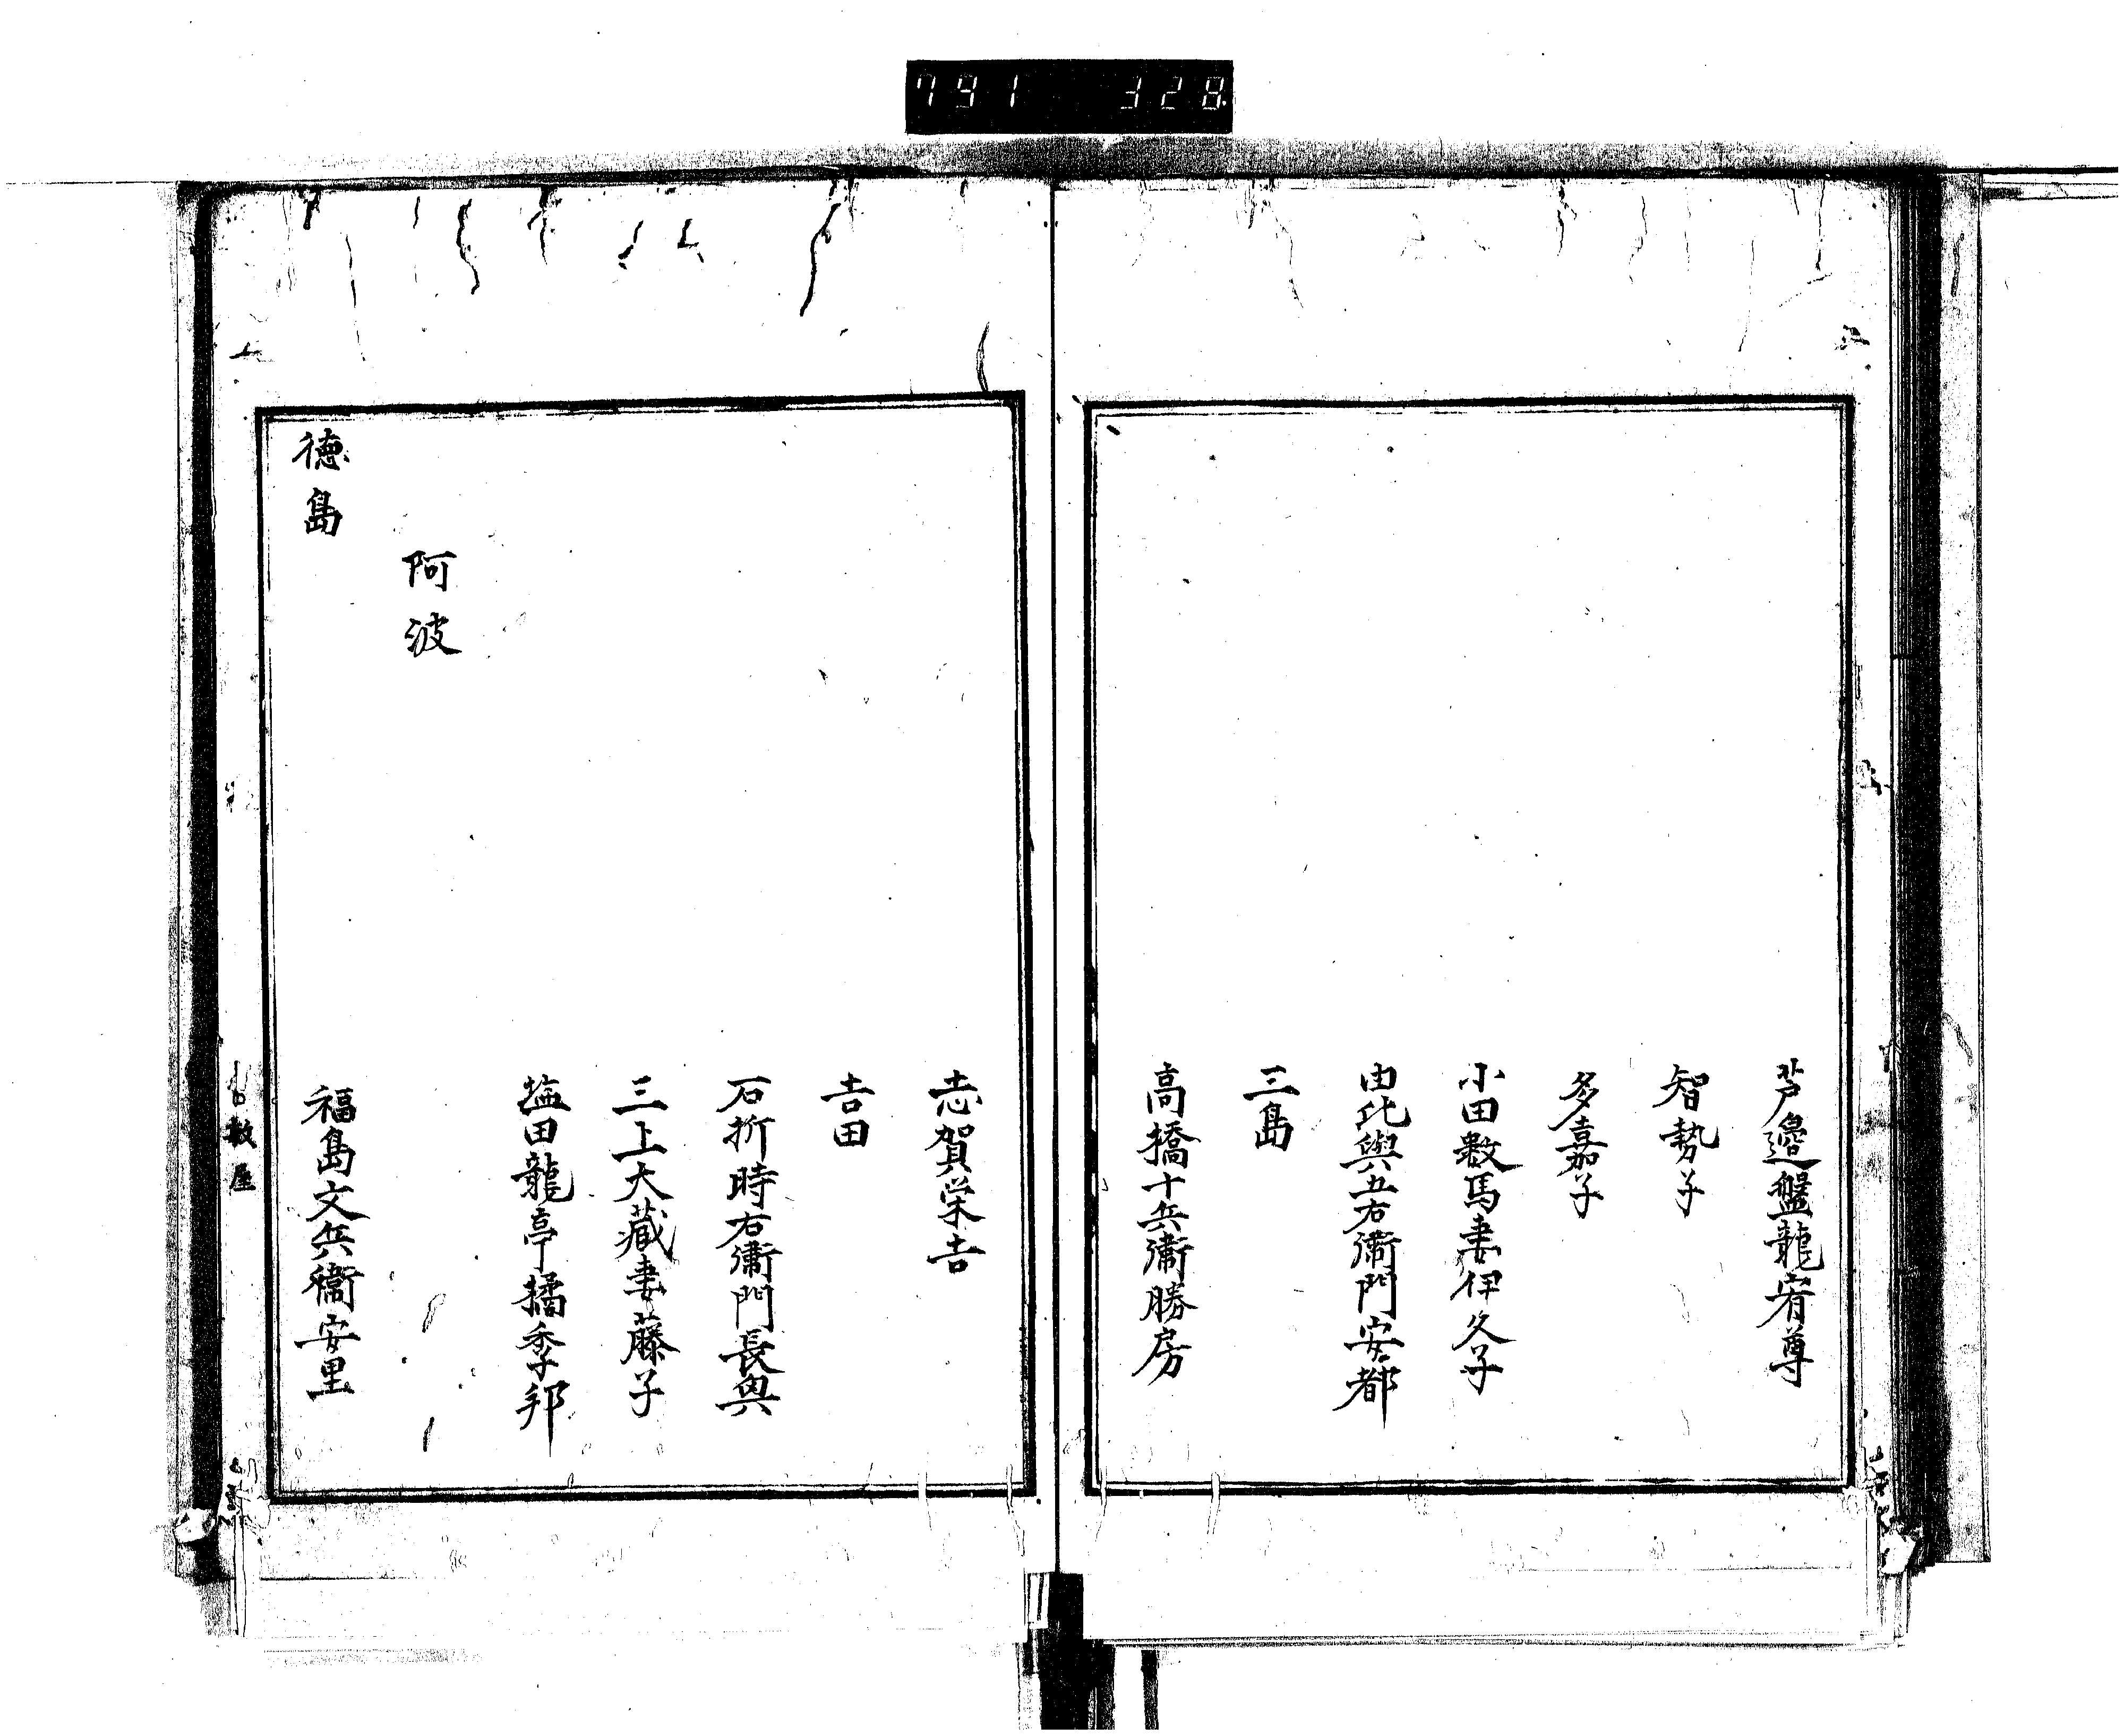 791 328
芦邉盤龍宥尊
智勢子
多嘉子
小田数馬妻伊久子
由比與五右衞門安都
三島
高橋十兵衞勝房
志賀栄吉
吉田
石折時右衞門長興
三上大蔵妻藤子
塩田龍亭橘季邦
阿波
徳島
福島文兵衞安里